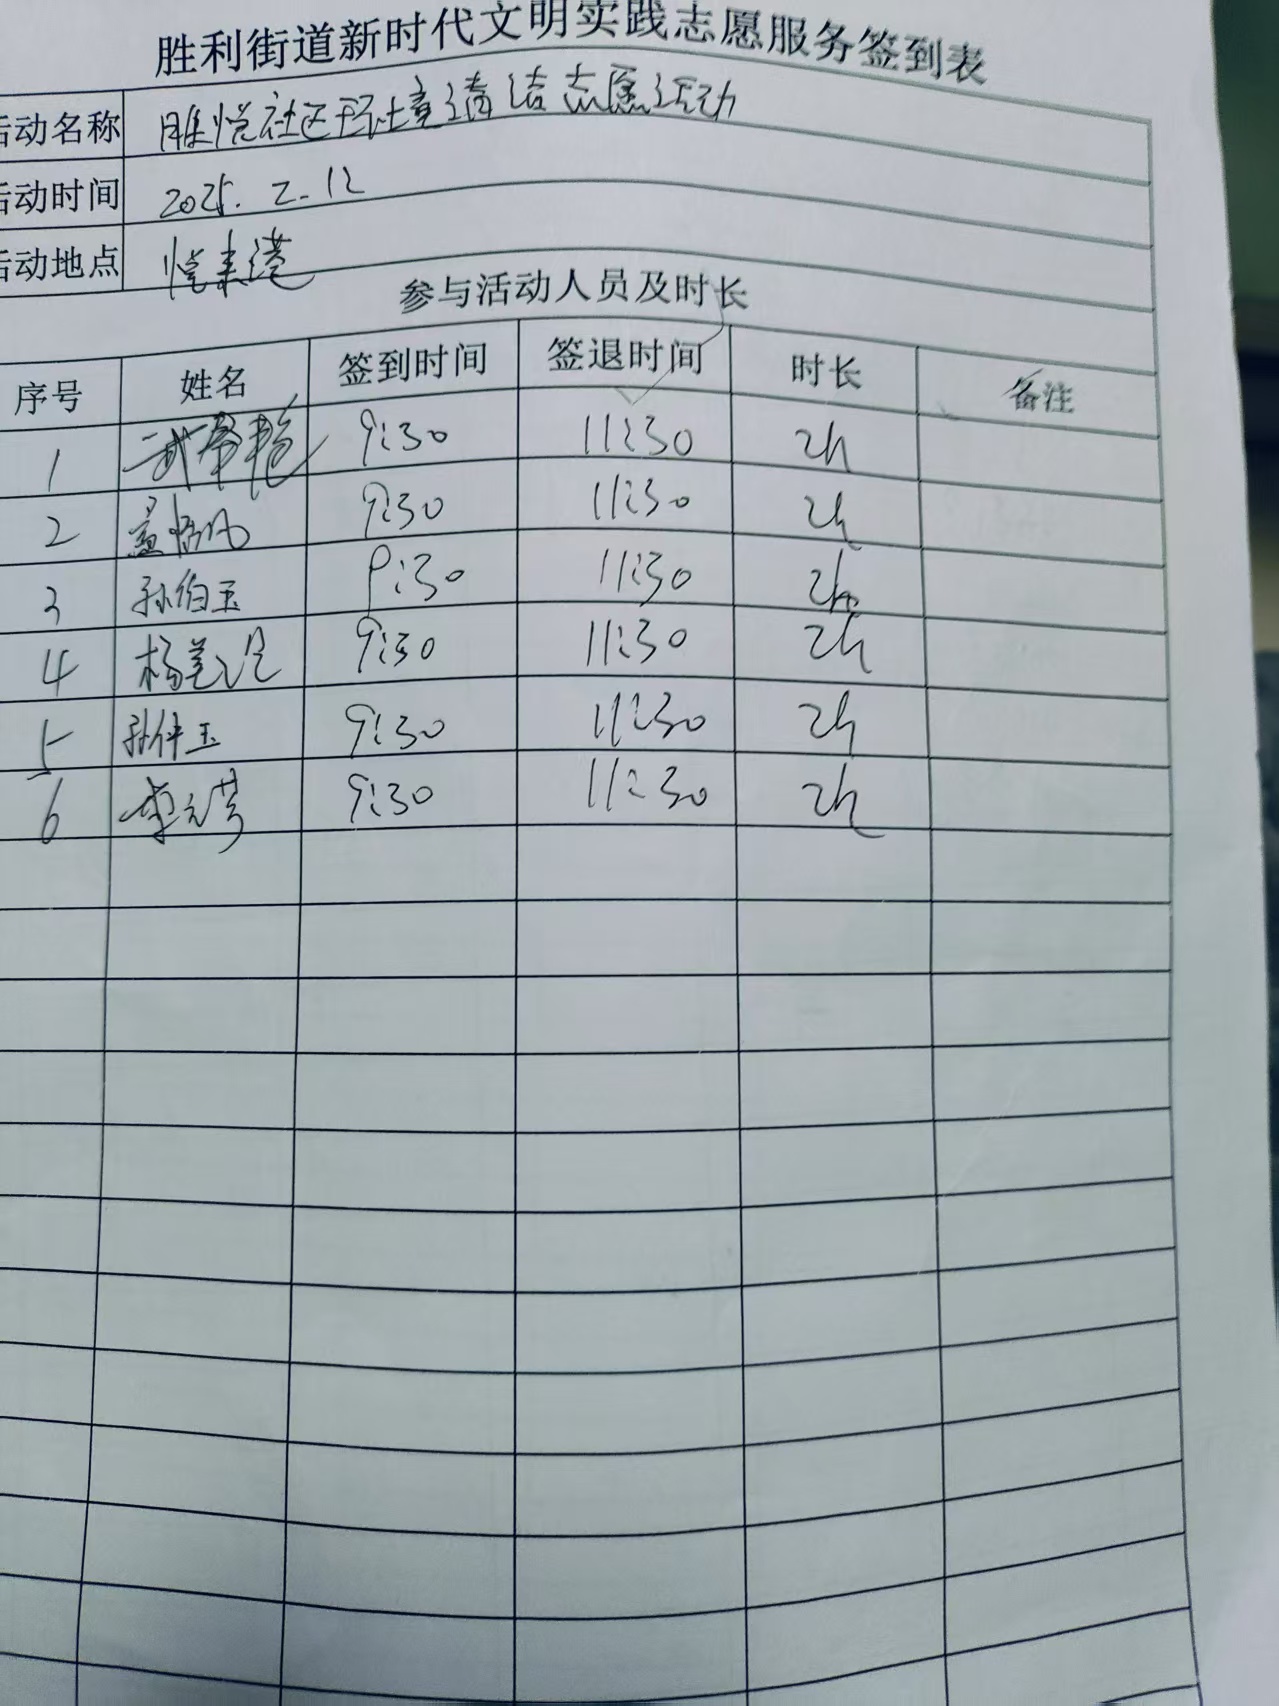 胜利街道新时代文明实践志愿服务签到表
活动名称 雅悦社区环境清洁志愿活动
活动时间 2025.2.12
活动地点 悦来港
参与活动人员及时长
序号 姓名 签到时间 签退时间 时长 备注
1 9:30 11:30 2h
2 9:30 11:30 2h
3 孙伯玉 9:30 11:30 2h
4 9:30 11:30 2h
5 孙仲玉 9:30 11:30 2h
6 李元芳 9:30 11:30 2h